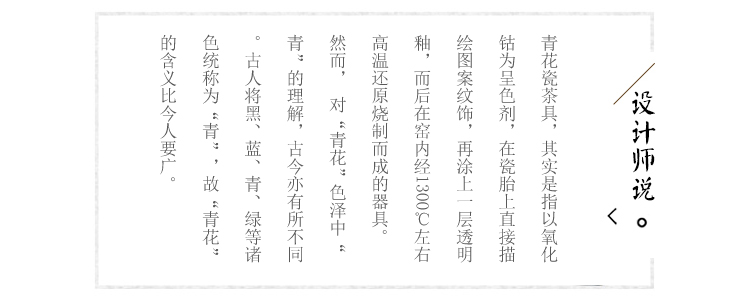 设计师说。
青花瓷茶具，其实是指以氧化
钴为呈色剂，在瓷胎上直接描
绘图案纹饰，再涂上一层透明
釉，而后在窑内经1300℃左右
高温还原烧制而成的器具。
然而，对“青花”色泽中“
青”的理解，古今亦有所不同
。古人将黑、蓝、青、绿等诸
色统称为“青”，故“青花”
的含义比今人要广。